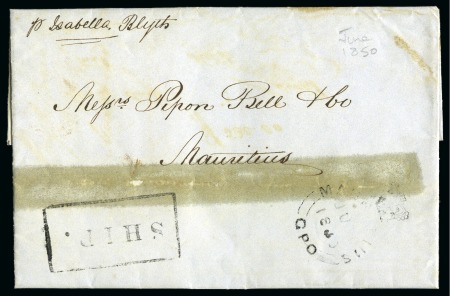 p Isabella Blyth
1850
Messrs Pipon Bell & Co
Mauritius
SHIP.
GPO